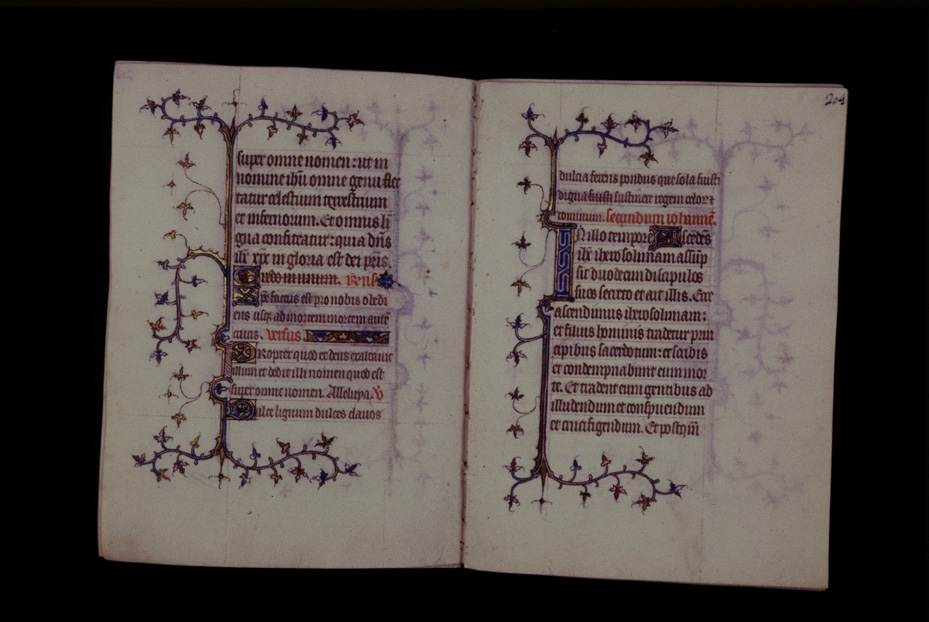 super omne nomen: ut in
nomine ihu omne genu flec
tatur celestium terestrium
et infernorum. Et omnis li
gua confiteatur: quia dns
ihc xpc in gloria est dei pris.
Quodomnium. Respons
Xpc factus est pro nobis obedi
ens usqz ad mortem mortem aute
crucis. Versus
Propter quod et deus exaltauit
illum et dedit illi nomen quod est
super omne nomen. Alleluya. V
Dulce lignum dulces clauos
204
dulcia ferens pondus que sola fuisti
digna sustinere regem celorz
dominum. secundum iohanne.
In illo tempore Ascedes
ihc iherosolimam assup
sit duodecim discipulos
suos secreto et ait illis. Ecce
ascendimus iherosolimam:
et filius hominis tradetur prin
cipibus sacerdotum: et scribis
et condempnabunt eum mor
te. Et tradent eum gentibus ad
illudendum et conspuendum
et crucifigendum. Et postqm